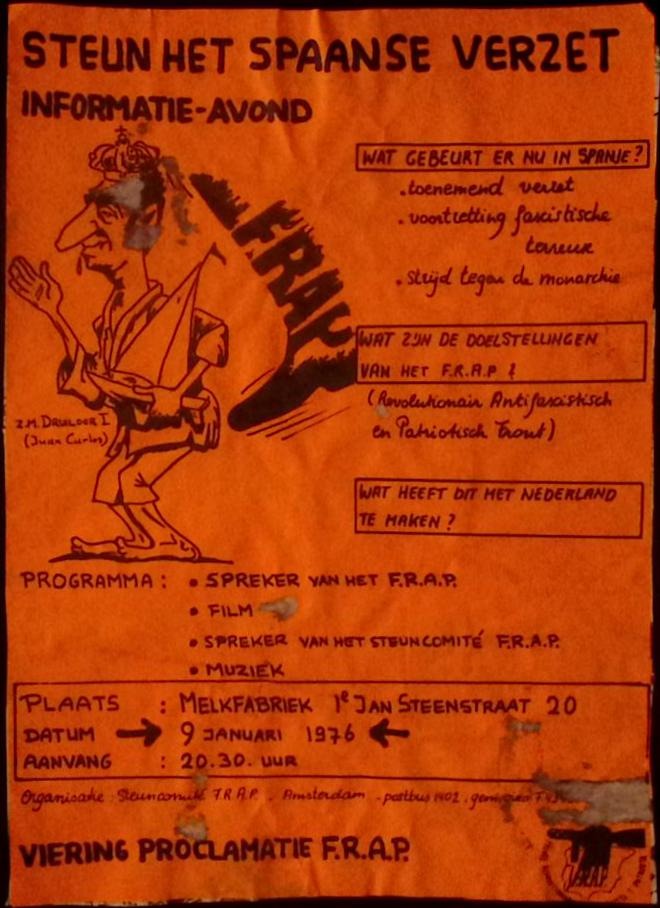 STEUN HET SPAANSE VERZET
INFORMATIE-AVOND
WAT GEBEURT ER NU IN SPANJE?
. toenemend verzet
. voortzetting fascistische
terreur
. Strijd tegen de monarchie
F.R.A.P.
WAT ZIJN DE DOELSTELLINGEN
VAN HET F.R.A.P ?
(Revolutionair Antifascistisch
en Patriotisch Front)
Z.M. DRUILOOR I
(Juan Carlos)
WAT HEEFT DIT MET NEDERLAND
TE MAKEN?
PROGRAMMA: • SPREKER VAN HET F.R.A.P.
• FILM
• SPREKER VAN HET STEUNCOMITÉ F.R.A.P.
• MUZIEK
PLAATS : MELKFABRIEK 1e JAN STEENSTRAAT 20
DATUM → 9 JANUARI 1976 ←
AANVANG : 20.30. UUR
Organisatie: Steuncomité F.R.A.P. . Amsterdam . postbus 1402 .
VIERING PROCLAMATIE F.R.A.P.
F.R.A.P.